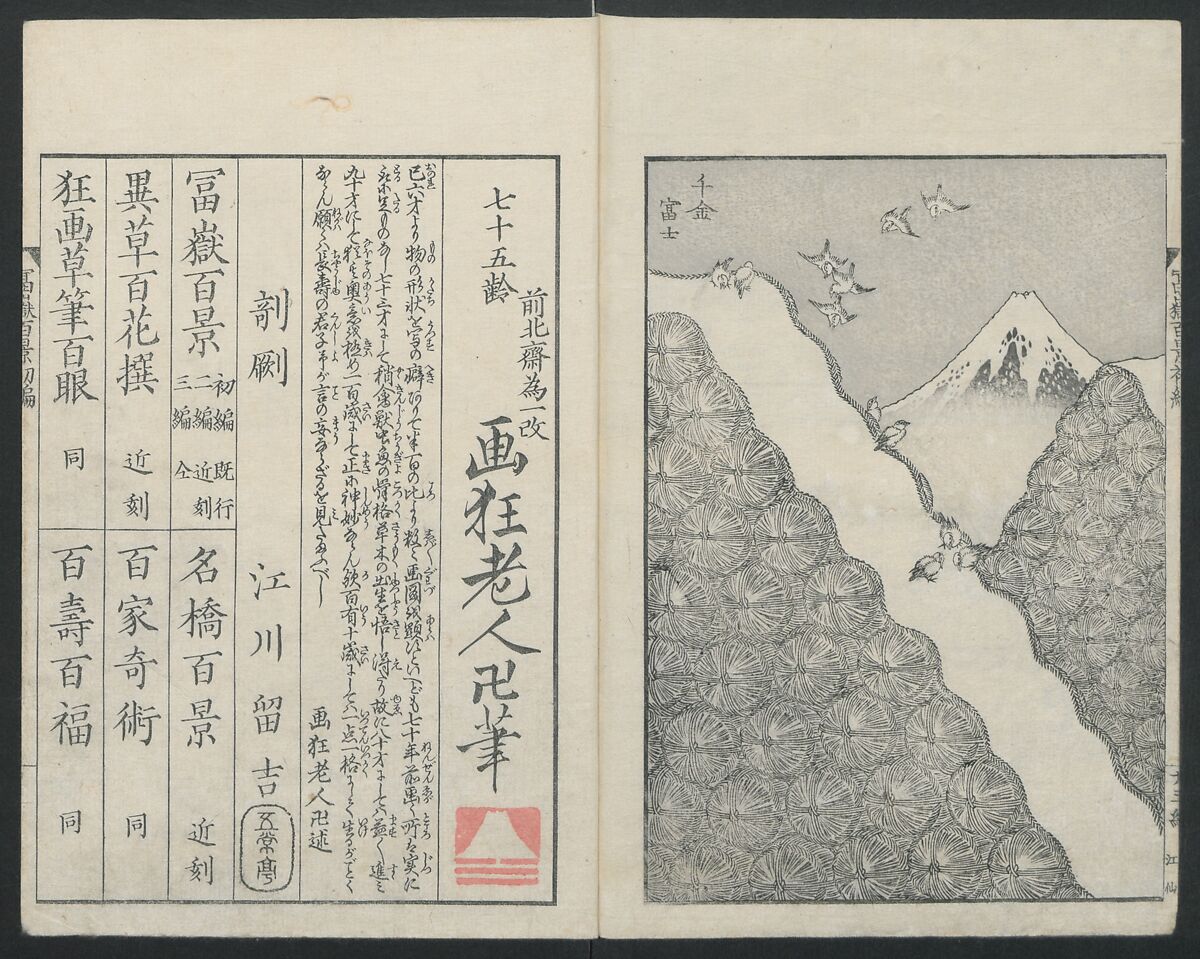 千金
富士
冨嶽百景初編
江仙
七十五齢
前北齋為一改
画狂老人卍筆
己六才より物の形状を写の癖ありて半百の比より数々画図を顕すといへども七十年前画く所は実に
取に足るものなし七十三才にして稍禽獣虫魚の骨格草木の出生を悟し得たり故に八十才にしては益々進み
九十才にして猶其奥意を極め一百歳にして正に神妙ならん歟百有十歳にしては一点一格にして生るがごとく
ならん願くは長寿の君子予が言の妄ならざるを見たまふべし
画狂老人卍述
剞劂 江川留吉 五常亭
冨嶽百景 初編既行
二編近刻
三編仝
名橋百景 近刻
異草百花撰 近刻
百家奇術 同
狂画草筆百眼 同
百壽百福 同
冨嶽百景初編